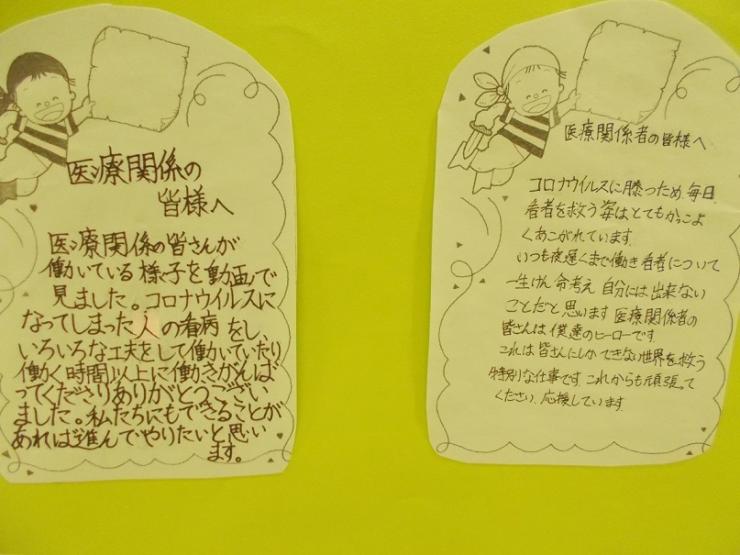 医療関係の
皆様へ
医療関係の皆さんが
働いている様子を動画で
見ました。コロナウイルスに
なってしまった人の看病をし、
いろいろな工夫をして働いていたり
働く時間以上に働きがんば
ってくださりありがとうござい
ました。私たちにもできることが
あれば進んでやりたいと思い
ます。
医療関係者の皆様へ
コロナウイルスに勝つため毎日
看者を救う姿はとてもかっこよ
くあこがれています。
いつも夜遅くまで働き看者について
一生けん命考え自分には出来ない
ことだと思います医療関係者の
皆さんは僕達のヒーローです。
これは皆さんにしかできない世界を救う
特別な仕事です。これからも頑張って
ください、応援しています。